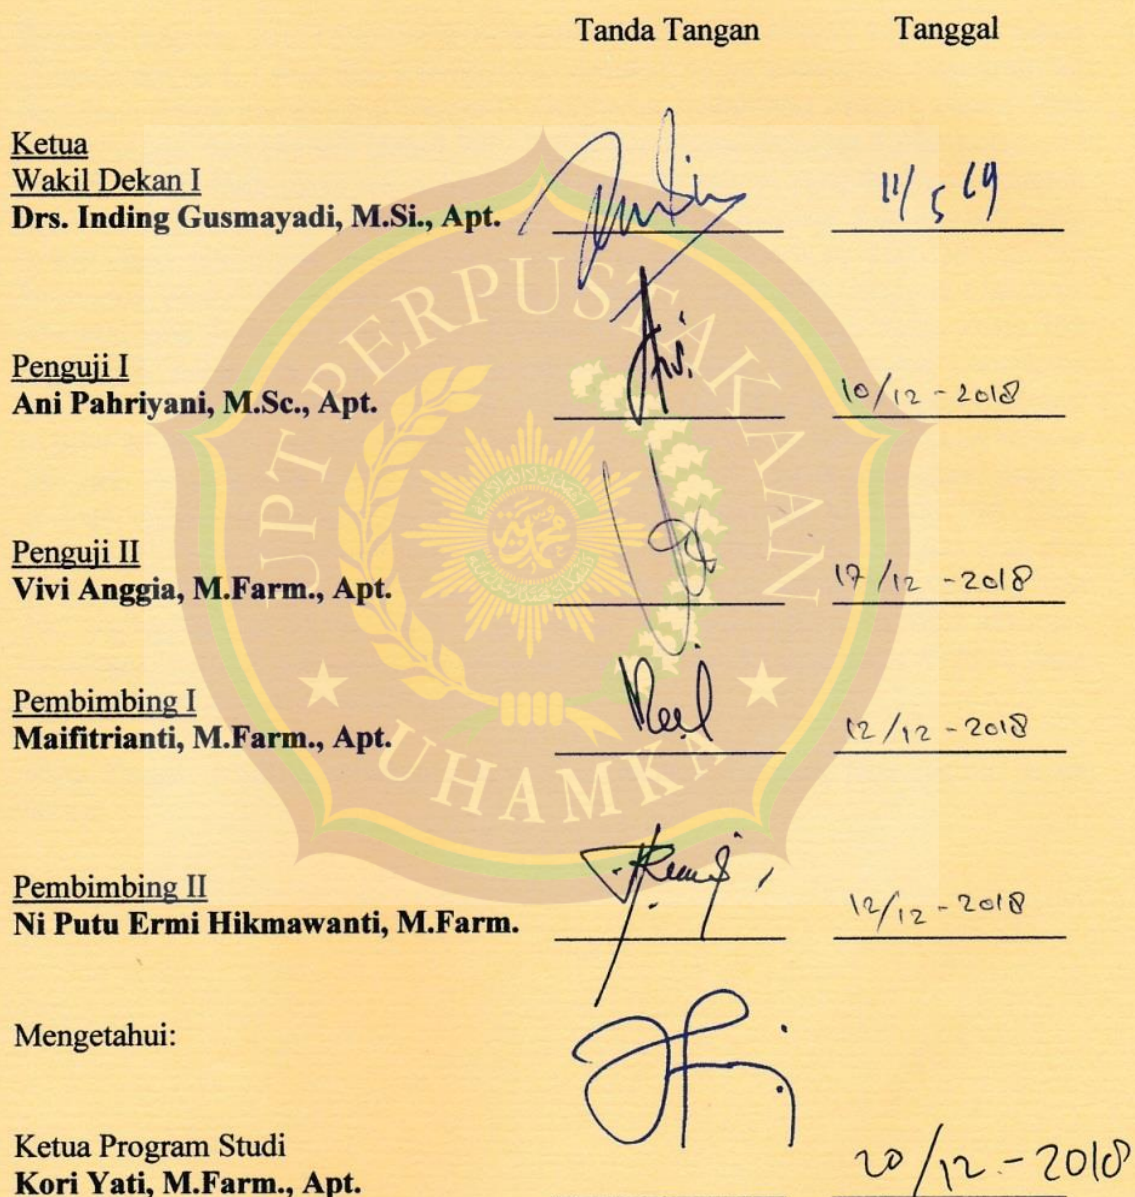 Tanda Tangan Tanggal
Ketua
Wakil Dekan I
Drs. Inding Gusmayadi, M.Si., Apt.
11/5 19
Penguji I
Ani Pahriyani, M.Sc., Apt. 10/12 - 2018
Penguji II
Vivi Anggia, M.Farm., Apt. 17/12 - 2018
Pembimbing I
Maifitrianti, M.Farm., Apt. 12/12 - 2018
Pembimbing II
Ni Putu Ermi Hikmawanti, M.Farm. 12/12 - 2018
Mengetahui:
Ketua Program Studi
Kori Yati, M.Farm., Apt. 20/12 - 2018
UPT PERPUSTAKAAN
UHAMKA